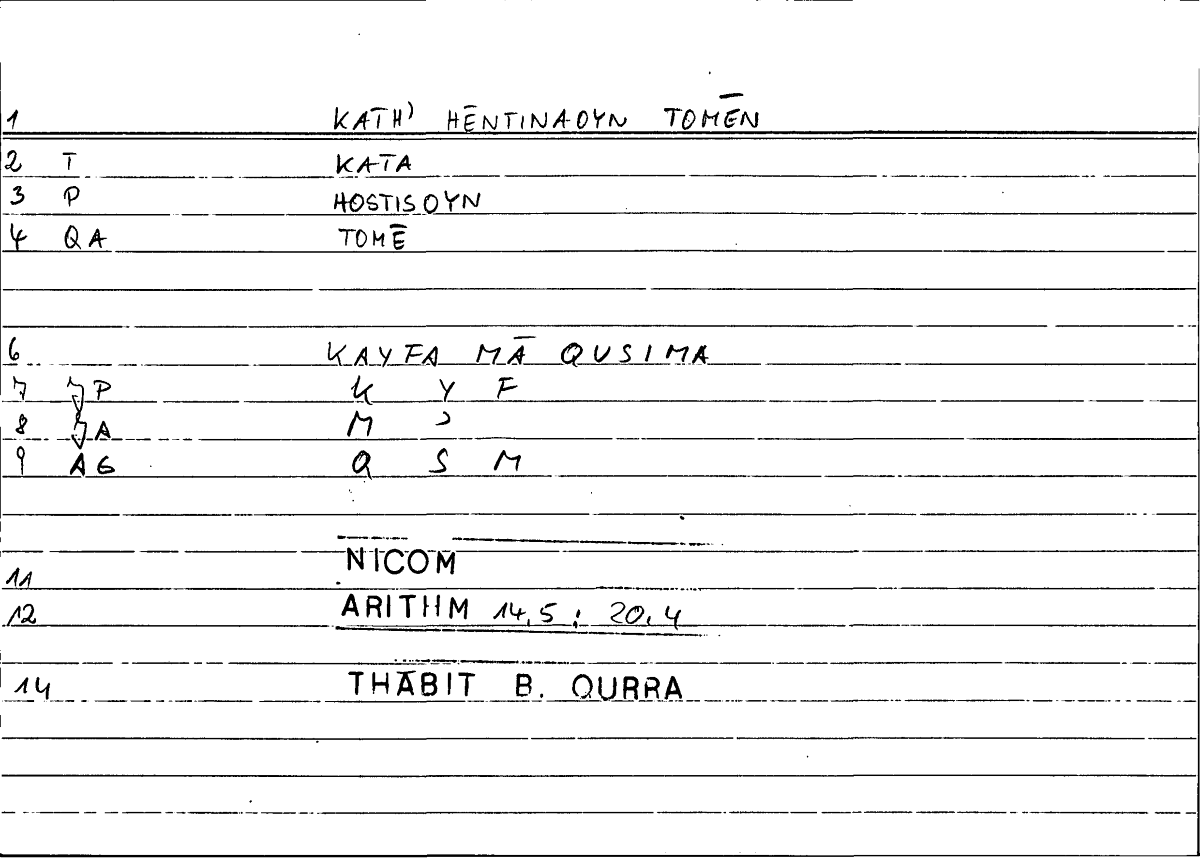 1 KATH' HĒNTINAOYN TOMĒN
2 T KATA
3 P HOSTISOYN
4 QA TOMĒ
6 KAYFA MĀ QUSIMA
7 P K Y F
8 A M ʾ
9 AG Q S M
11 NICOM
12 ARITHM 14,5 ; 20,4
14 THĀBIT B. QURRA